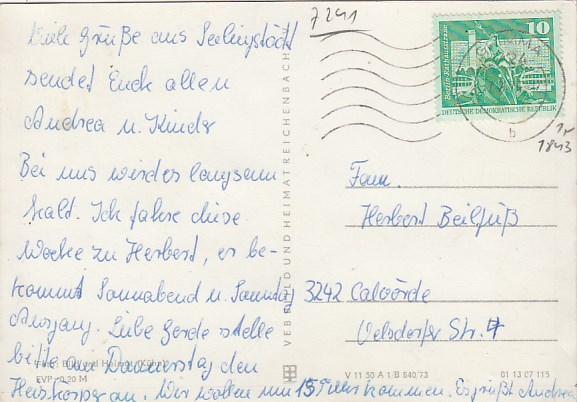 7241
Viele Grüße aus Seelingstädt
sendet Euch allen
Andrea u. Kinder
Bei uns wird es langsam
kalt. Ich fahre diese
Woche zu Herbert, er be-
kommt Sonnabend u. Sonntag
Ausgang. Liebe Gerda stelle
bitte am Donnerstag den
Heizkörper an. Wir wollen um 15 Uhr kommen. Es grüßt Andrea
EVP: 0,20 M
VEB BILD UND HEIMAT REICHENBACH
Berlin-Rathausstrasse
10
DEUTSCHE DEMOKRATISCHE REPUBLIK
GRIMMA
b
1843
Fam.
Herbert Beilfuß
3242 Calvörde
Velsdorfer Str. 7
V 11 50 A 1/B 840/73
01 13 07 115